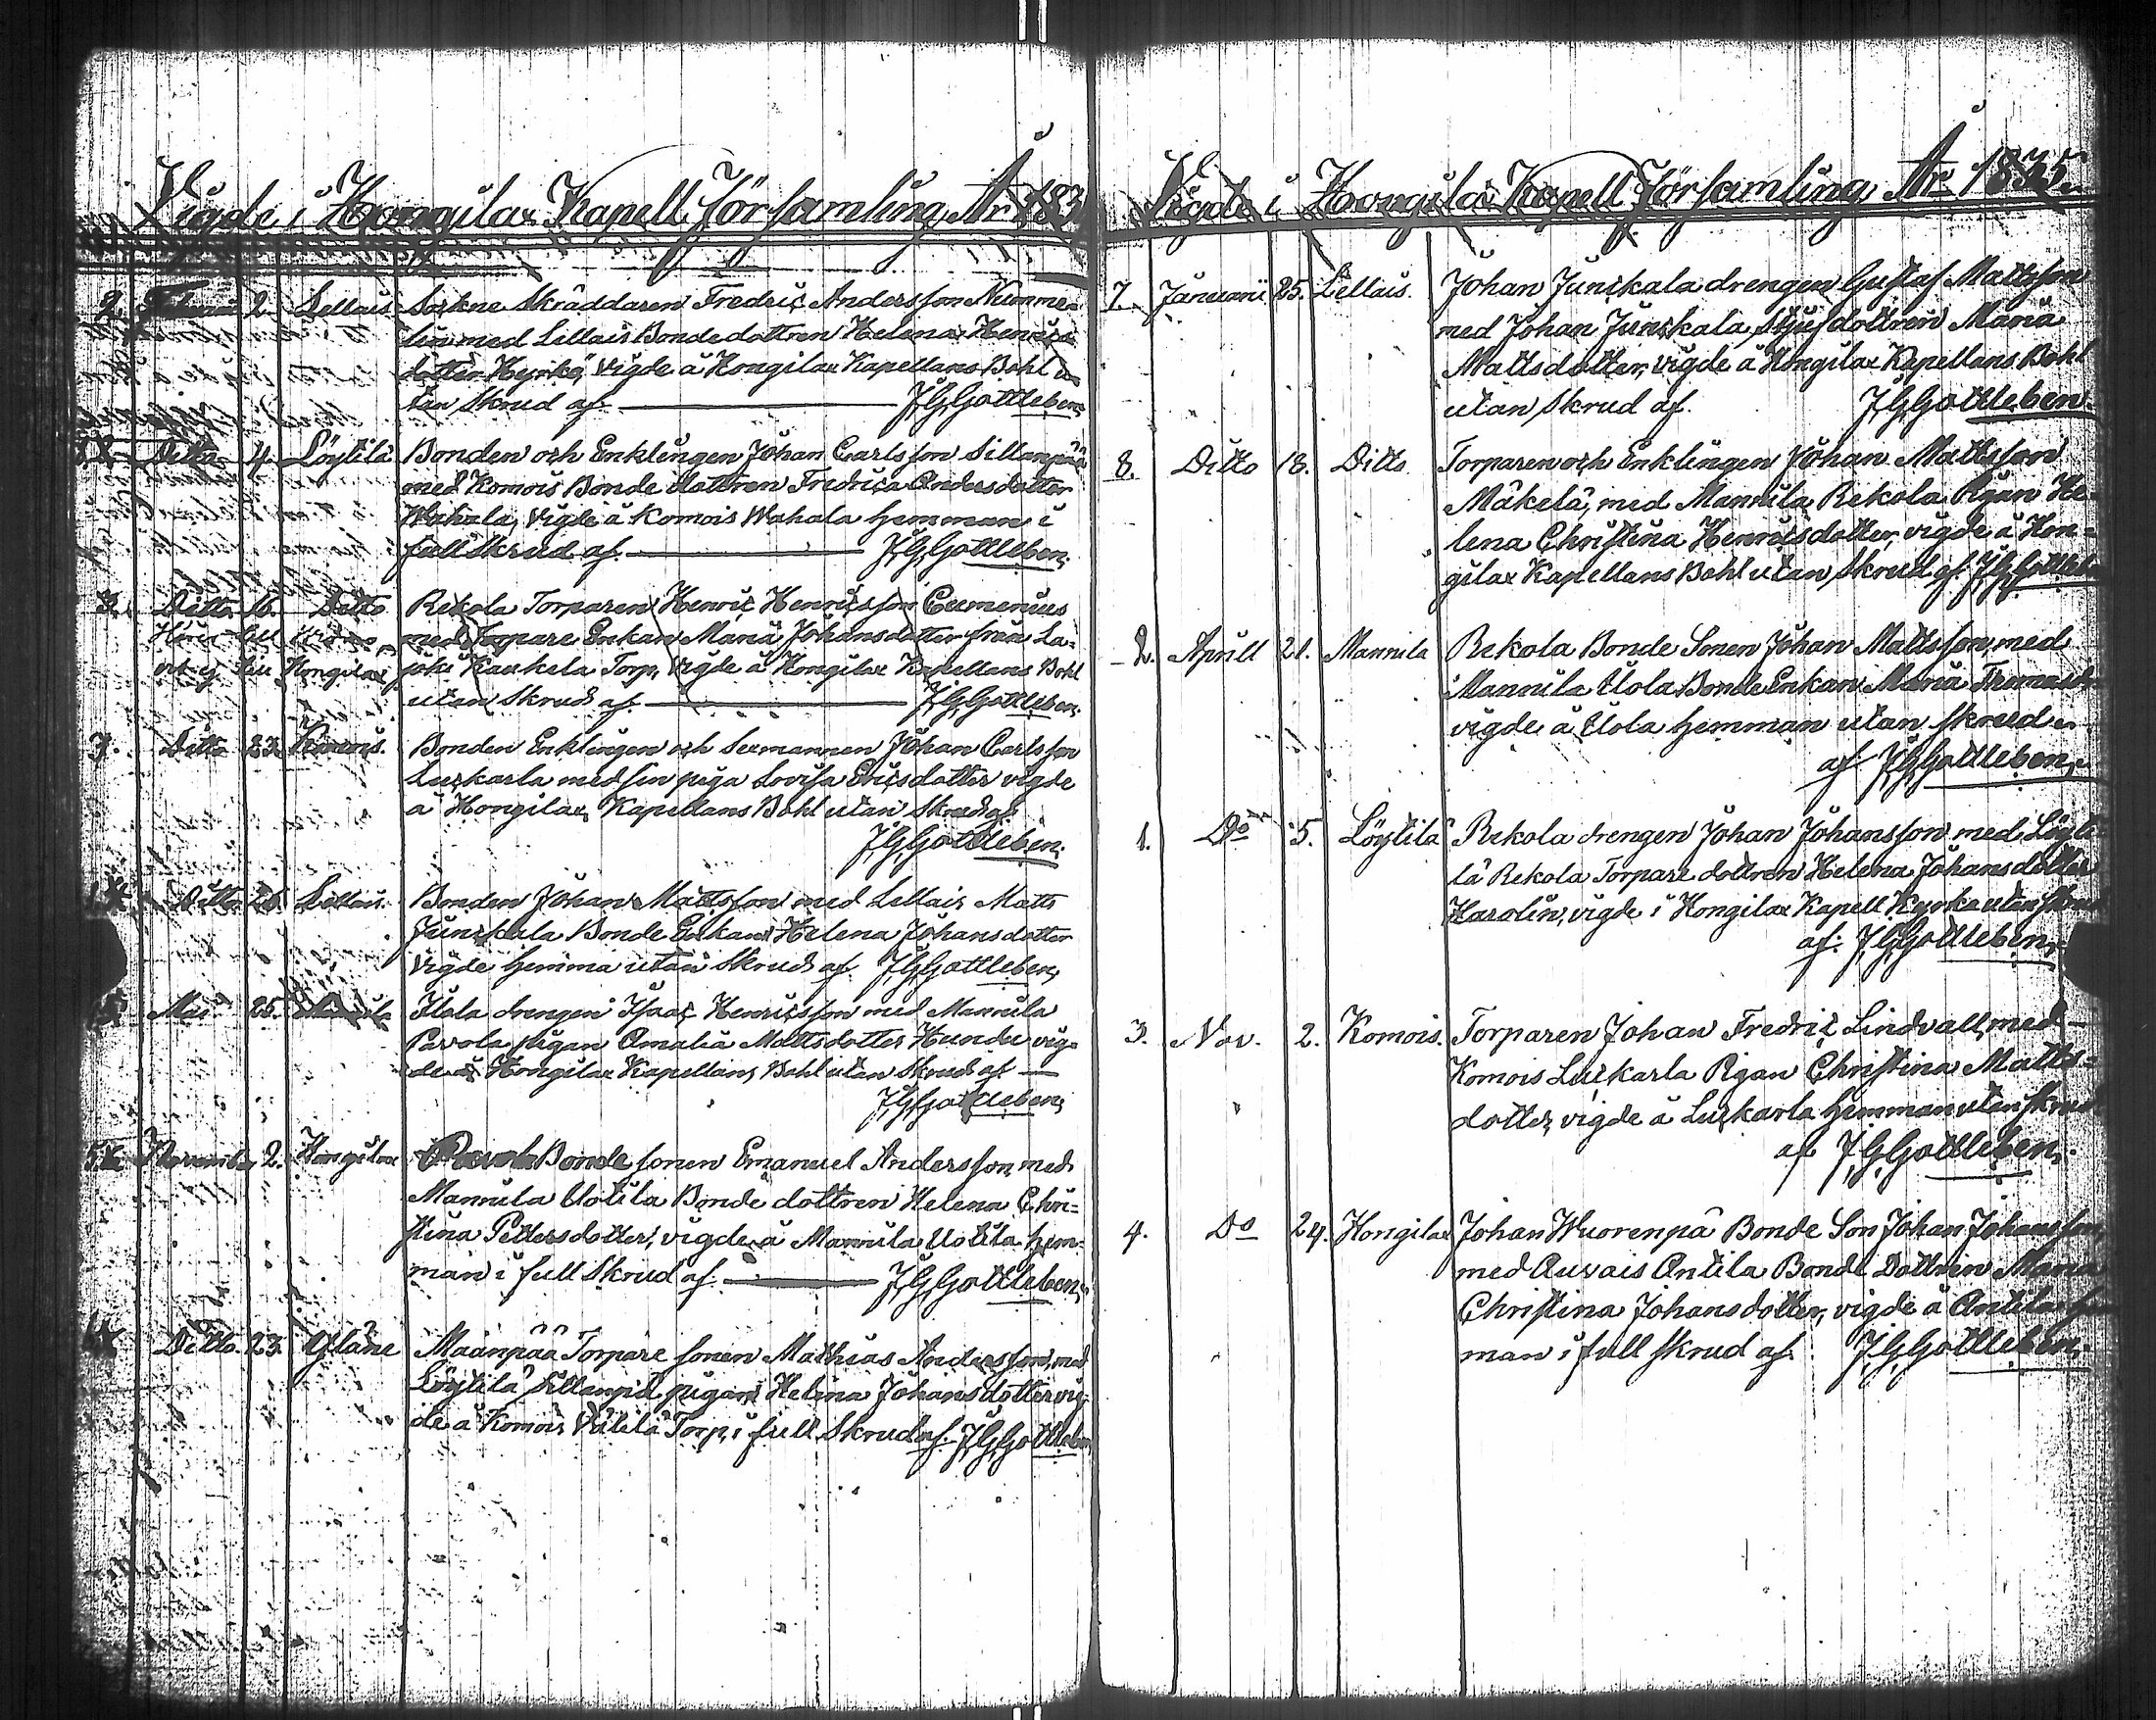 Vigde i Hongilax Kapell församling År 183
2. Februarii 2. Lellais Sockne Skräddaren Fredric Andersson Numme-
lin med Lellais Bondedottren Helena Henrics
dotter Heyrkö, Vigde å Hongilax Kapellans Bohl u
tan Skrud af. J.G.Gottleben.
Ditto 4. Löytilä Bonden och Enklingen Johan Carlsson Sillanpää
med Komois Bonde dottren Fredrica Andersdotter
Wahala, Vigde å Komois Wahala hemman i
full Skrud af. J.G.Gottleben.
3. Ditto 16. Ditto Rekola Torparen Henric Henricsson Eumenius
med Torpare Enkan Maria Johansdotter från La-
joki Kaukela Torp, Vigde å Hongilax Kapellans Bohl
utan Skrud af. J.G.Gottleben.
3. Ditto 23. Komois. Bonden Enklingen och Sexmannen Johan Carlsson
Luskarla med sin piga Lovisa Ericsdotter vigde
å Hongilax Kapellans Bohl utan Skrud af.
J.G.Gottleben.
Ditto 26. Lellais. Bonden Johan Mattsson med Lellais Matts
Junskala Bonde Enkan Helena Johansdotter
Vigde hemma utan Skrud af. J.G.Gottleben.
Maii 25. Mannila drengen Isaac Henricsson med Mannila
Pavola pigan Amalia Mattsdotter Hunder vig-
de å Hongilax Kapellans Bohl utan Skrud af
J.G.Gottleben.
November 2. Hongilax Bonde sonen Emanuel Andersson, med
Mannila Uotila Bonde dottren Helena Chri-
stina Pettersdotter, vigde å Mannila Uotila hem-
man i full Skrud af. J.G.Gottleben.
Ditto 23. Yläne Maanpää Torpare sonen Mathias Andersson, med
Löytilä pigan Helena Johansdotter vig-
de å Komois Välilä Torp, i full Skrud af. J.G.Gottleben
Vigde i Hongilax Kapell Församling År 1835.
7. Januarii 25. Lellais. Johan Junskala drengen Gustaf Mattsson
med Johan Junskala Stjufdottren Maria
Mattsdotter, vigde å Hongilax Kapellans Bohl
utan Skrud af. J.G.Gottleben.
8. Ditto 18. Ditto Torparen och Enklingen Johan Mattsson
Mäkelä, med Mannila Rekola Pigan He-
lena Christina Henricsdotter, vigde å Hon-
gilax Kapellans Bohl utan Skrud af J.G.Gottleben
2. Aprill 21. Mannila Rekola Bonde Sonen Johan Mattsson, med
Mannila Uola Bonde Enkan Maria Thomasd
vigde å Uola hemman utan skrud
af J.G.Gottleben.
1. Do 5. Löytilä Rekola drengen Johan Johansson med Löyti
lä Rekola Torpare dottren Helena Johansdotter
Harolin, vigde i Hongilax Kapell Kyrka utan Skrud
af. J.G.Gottleben.
3. Nov. 2. Komois. Torparen Johan Fredric Lindvall, med
Komois Luskarla Pigan Christina Matts-
dotter, vigde å Luskarla hemman utan Skrud
af J.G.Gottleben.
4. Do 24. Hongilax Johan Wuorenpä Bonde Son Johan Johansson
med Auvais Antila Bonde Dottren Maria
Christina Johansdotter, vigde å Antila hem
man i full skrud af. J.G.Gottleben.